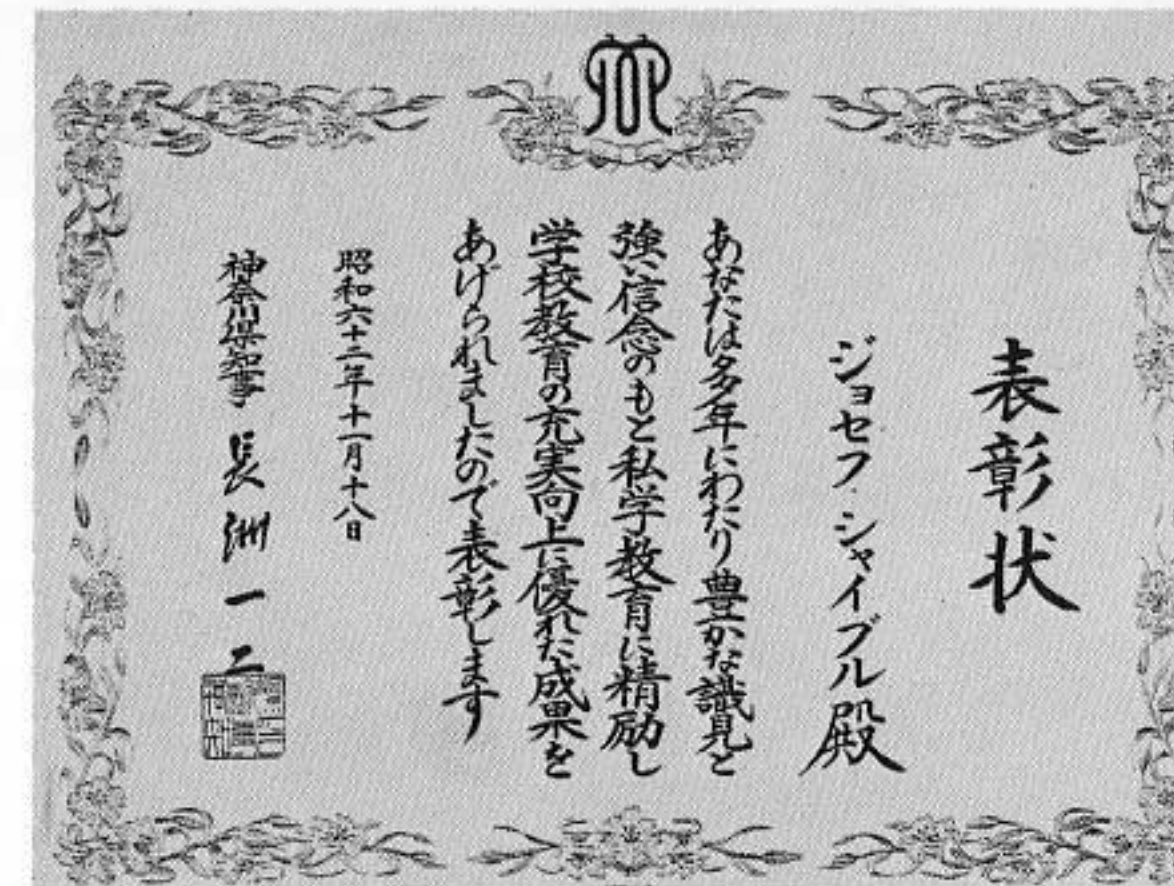 表彰状
ジョセフ・シャイブル殿
あなたは多年にわたり豊かな識見と
強い信念のもと私学教育に精励し
学校教育の充実向上に優れた成果を
あげられましたので表彰します
昭和六十二年十一月十八日
神奈川県知事 長洲一二